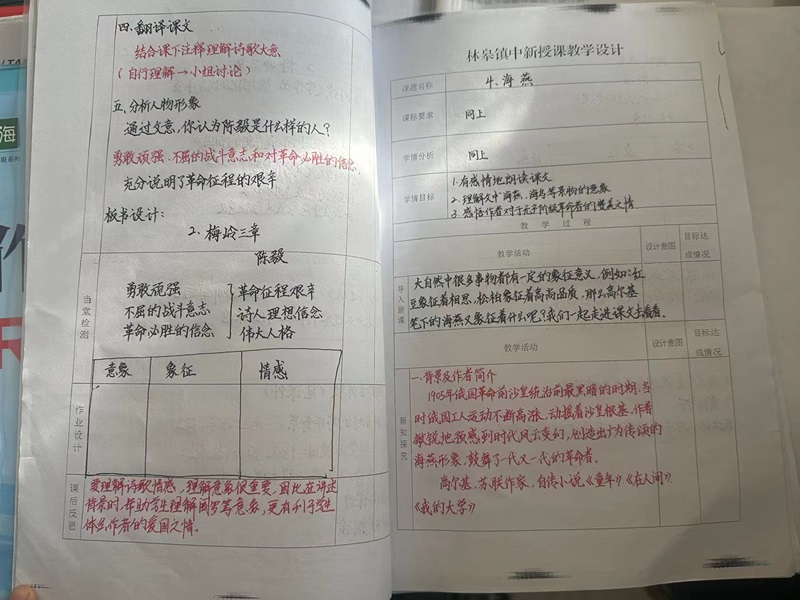 四.翻译课文
结合课下注释理解诗歌大意
(自行理解→小组讨论)
五.分析人物形象
通过文意,你认为陈毅是什么样的人?
勇敢顽强、不屈的战斗意志和对革命必胜的信念
充分说明了革命征程的艰辛
板书设计:
2. 梅岭三章
陈毅
勇敢顽强
不屈的战斗意志
革命必胜的信念
革命征程艰辛
诗人理想信念
伟大人格
当堂检测
意象 象征 情感
作业设计
课后反思
要理解诗歌情感,理解意象很重要,因此在讲述
背景时,帮助学生理解阎罗等意象,更有利于学生
体会作者的爱国之情。
林皋镇中新授课教学设计
课题名称 4、海燕
课标要求 同上
学情分析 同上
学情目标
1.有感情地朗读课文
2.理解文中海燕、海鸟等景物的意象
3.感悟作者对于无产阶级革命者的赞美之情
教学过程
教学活动 设计意图 目标达成情况
导入新课
大自然中很多事物都有一定的象征意义,例如:红
豆象征着相思,松柏象征着高尚品质,那么高尔基
笔下的海燕又象征着什么呢?我们一起走进课文去看看.
教学活动 设计意图 目标达成情况
新知探究
一.背景及作者简介
1905年俄国革命前沙皇统治前最黑暗的时期.当
时俄国工人运动不断高涨,动摇着沙皇根基,作者
敏锐地预感到时代风云变幻,创造出广为传颂的
海燕形象,鼓舞了一代又一代的革命者.
高尔基,苏联作家,自传小说《童年》《在人间》
《我的大学》